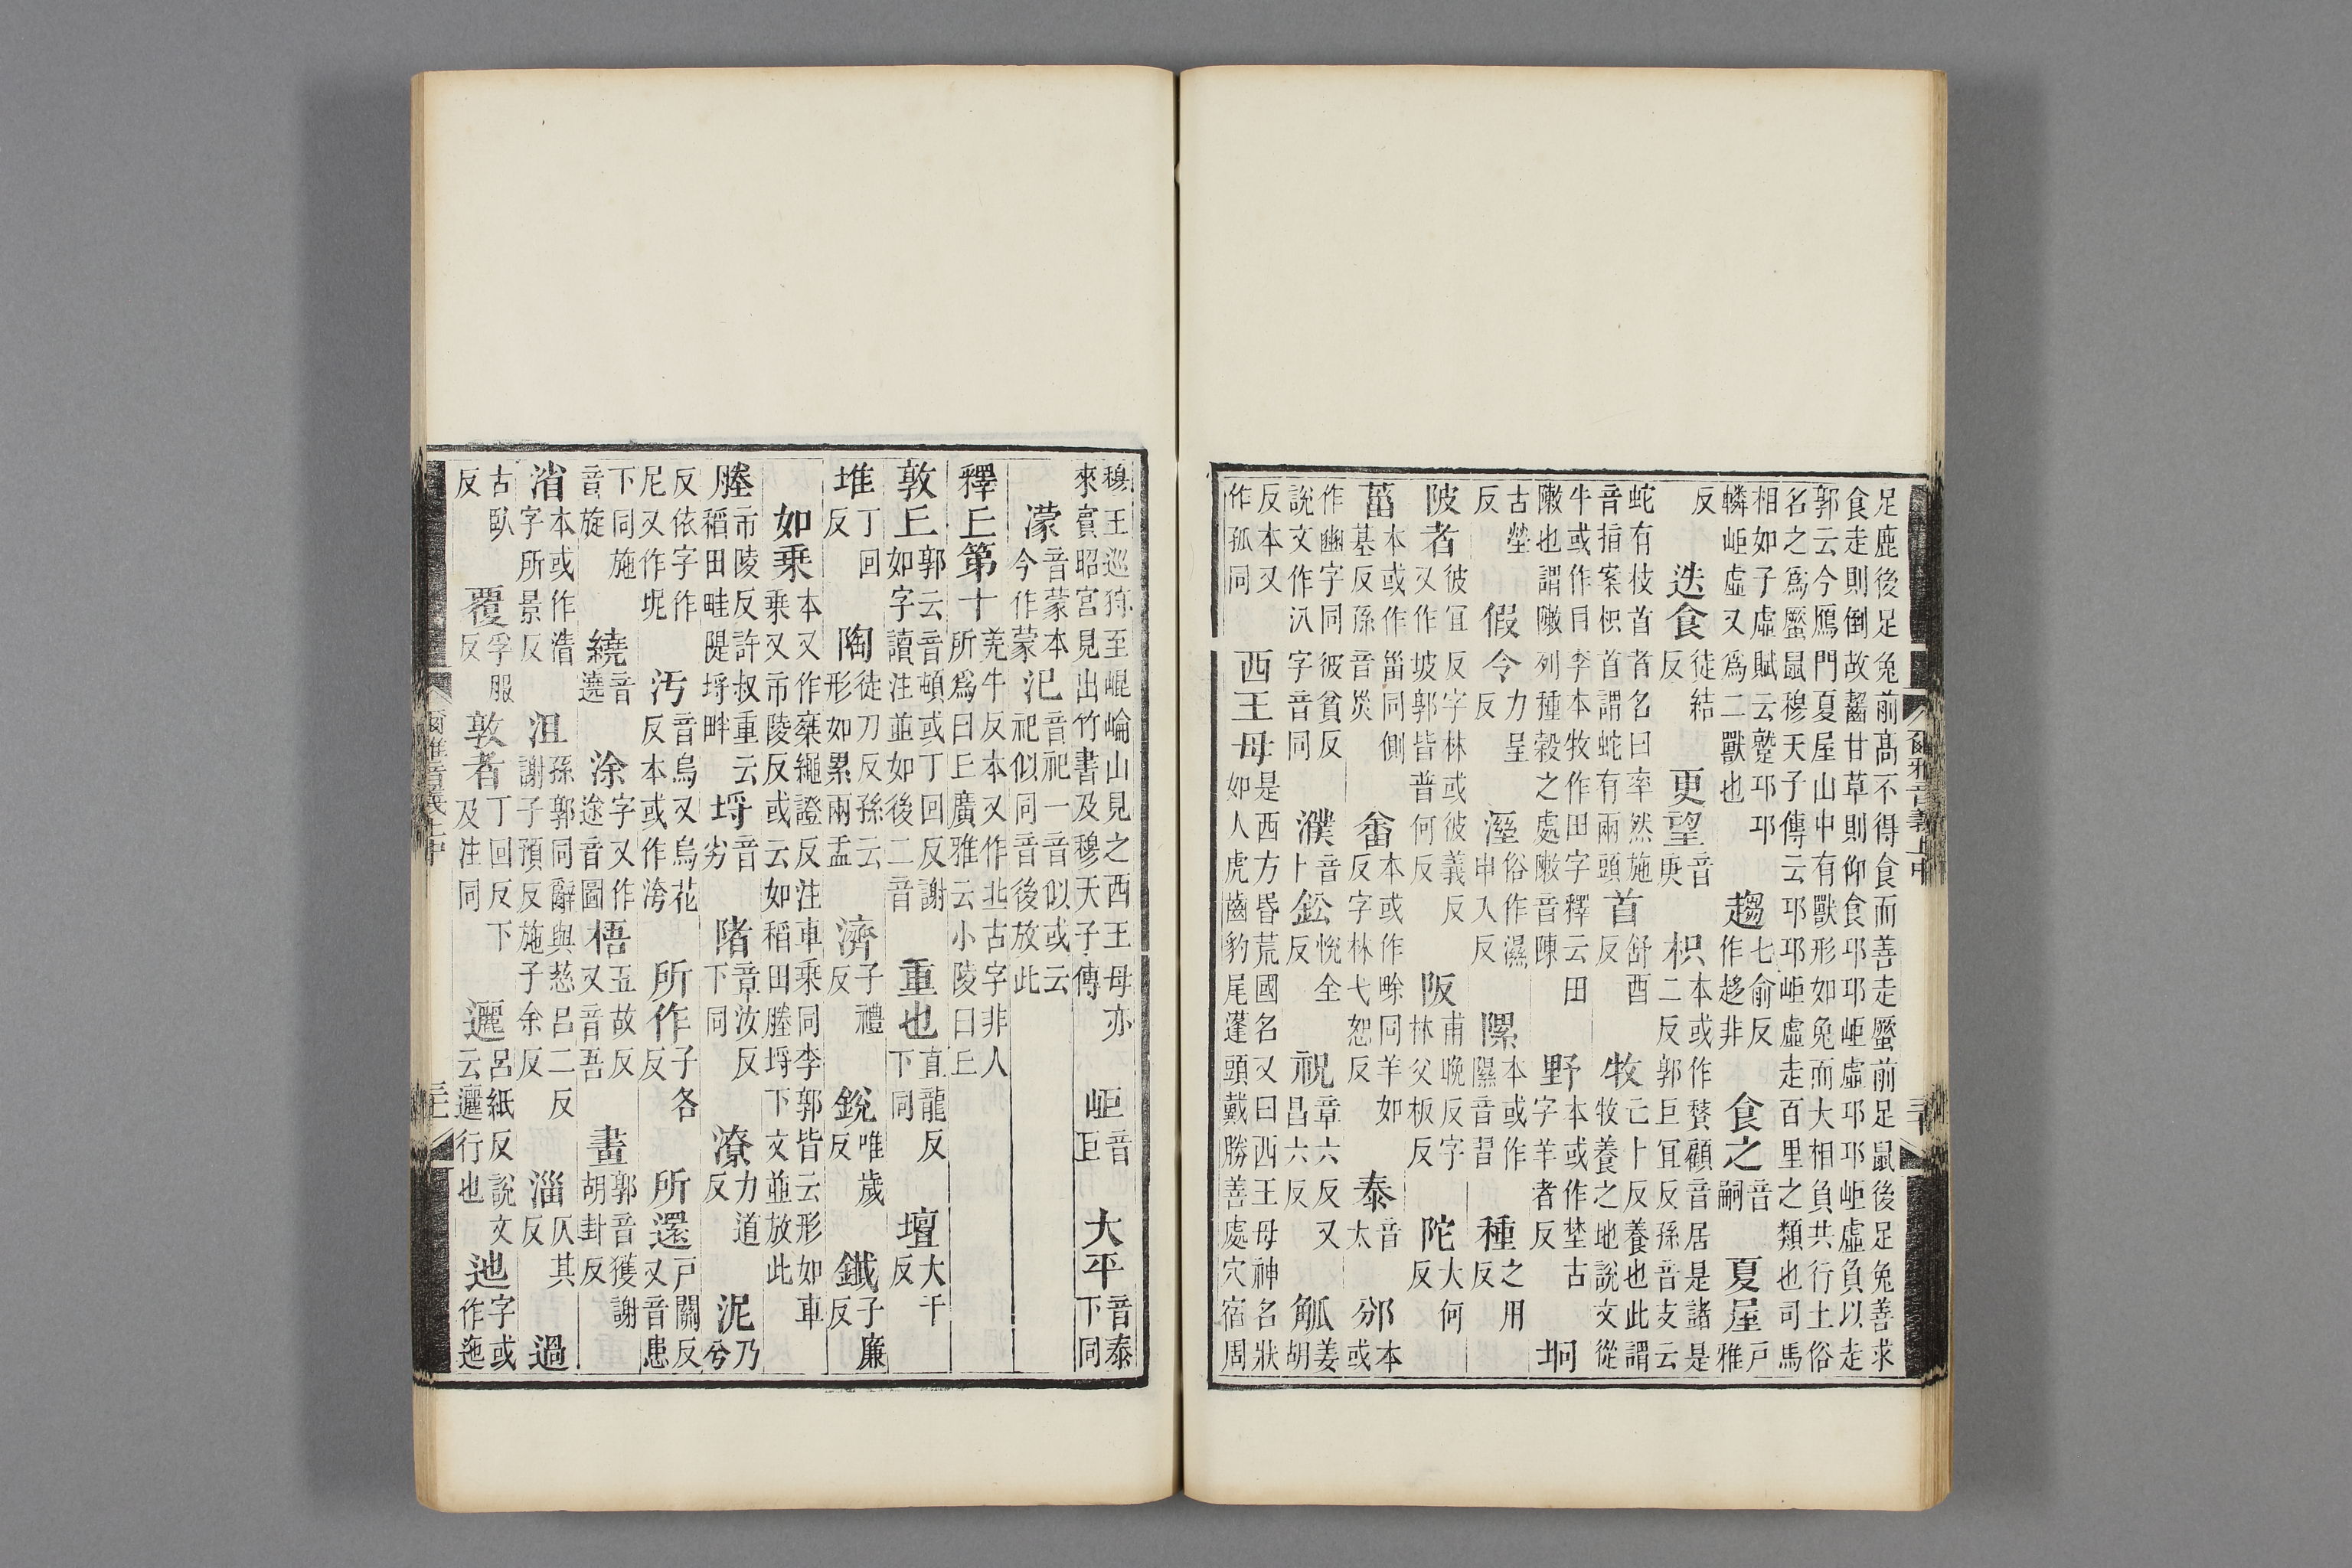 足鹿後足兔前高不得食而善走蟨前足鼠後足兔善求食走則倒故齧甘草則仰食邛邛岠虛邛邛岠虛負以走
郭云今鴈門夏屋山中有獸形如兔而大相負共行土俗名之爲蟨鼠穆天子傳云邛邛岠虛走百里之類也司馬
相如子虛賦云蹵邛邛轔岠虛又爲二獸也 趨七俞反作趍非 食之音嗣 夏屋戸雅
反 迭食徒結反 更望音庚 枳本或作𧶠顧音居是諸是二反郭巨宜反孫音支云
蛇有枝首者名曰率然施音指案枳首謂蛇有兩頭 首舒酉反 牧亡卜反養也此謂牧養之地說文從
牛或作目李本牧作田字釋云田敶也謂敶列種穀之處敶音陳 野本或作埜古字羊者反 坰
古塋反 假令力呈反 溼俗作濕申入反 隰本或作隰音習 種之用反
陂者彼宜反字林或彼義反又作坡郭皆普何反 阪甫晚反字林父板反 陀大何反
葘本或作甾同側基反孫音災 畬本或作㽣同羊如反字林弋恕反 泰音太 邠本或
作豳字同彼貧反說文作汃字音同 濮音卜 鈆悅全反 祝章六反又昌六反 觚姜胡
反本又作孤同 西王母是西方昏荒國名又曰西王母神名狀如人虎齒豹尾蓬頭戴勝善處穴宿周
爾雅音義上中 三十
穆王巡狩至崐崘山見之西王母亦來賓昭宮見出竹書及穆天子傳 岠音巨 大平音泰下同
濛音蒙本今作蒙 汜音祀一音似或云祀似同音後放此
釋丘第十羌牛反本又作北古字非人所爲曰丘廣雅云小陵曰丘
敦丘郭云音頓或丁回反謝如字讀注並如後二音 重也直龍反下同 壇大千反
堆丁回反 陶徒刀反孫云形如累兩盂 濟子禮反 銳唯歲反 鐵子廉反
如乘本又作椉繩證反注車乘同李郭皆云形如車乘又市陵反或云如稻田塍埒下文並放此
塍市陵反許叔重云稻田畦隄埒畔 埒音劣 陼章汝反下同 潦力道反 泥乃兮
反依字作尼又作坭 汚音烏又烏花反本或作洿 所作子各反 所還戸關反又音患
下同施音旋 繞音遶 涂字又作途音圖 梧五故反又音吾 畫郭音獲謝胡卦反
渻本或作渻字所景反 沮孫郭同辭與慈呂二反謝子預反施子余反 淄仄其反 過
古臥反 覆孚服反 敦者丁回反下及注同 邐呂紙反說文云邐行也 迆字或作迤
爾雅音義上中